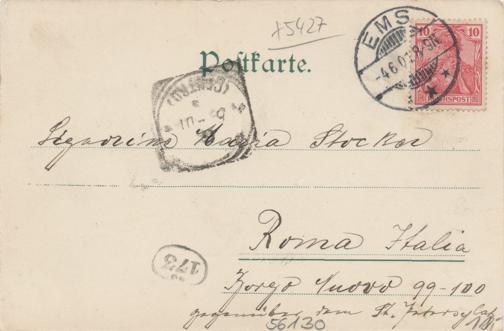 +5427
EMS
-4.6.02.8-9N.
10 10
REICHSPOST
Postkarte.
(CENTRO)
Signorina Maria Stockar
Roma Italia
173
Borgo Nuovo 99-100
gegenüber dem St. Petersplatz
56130